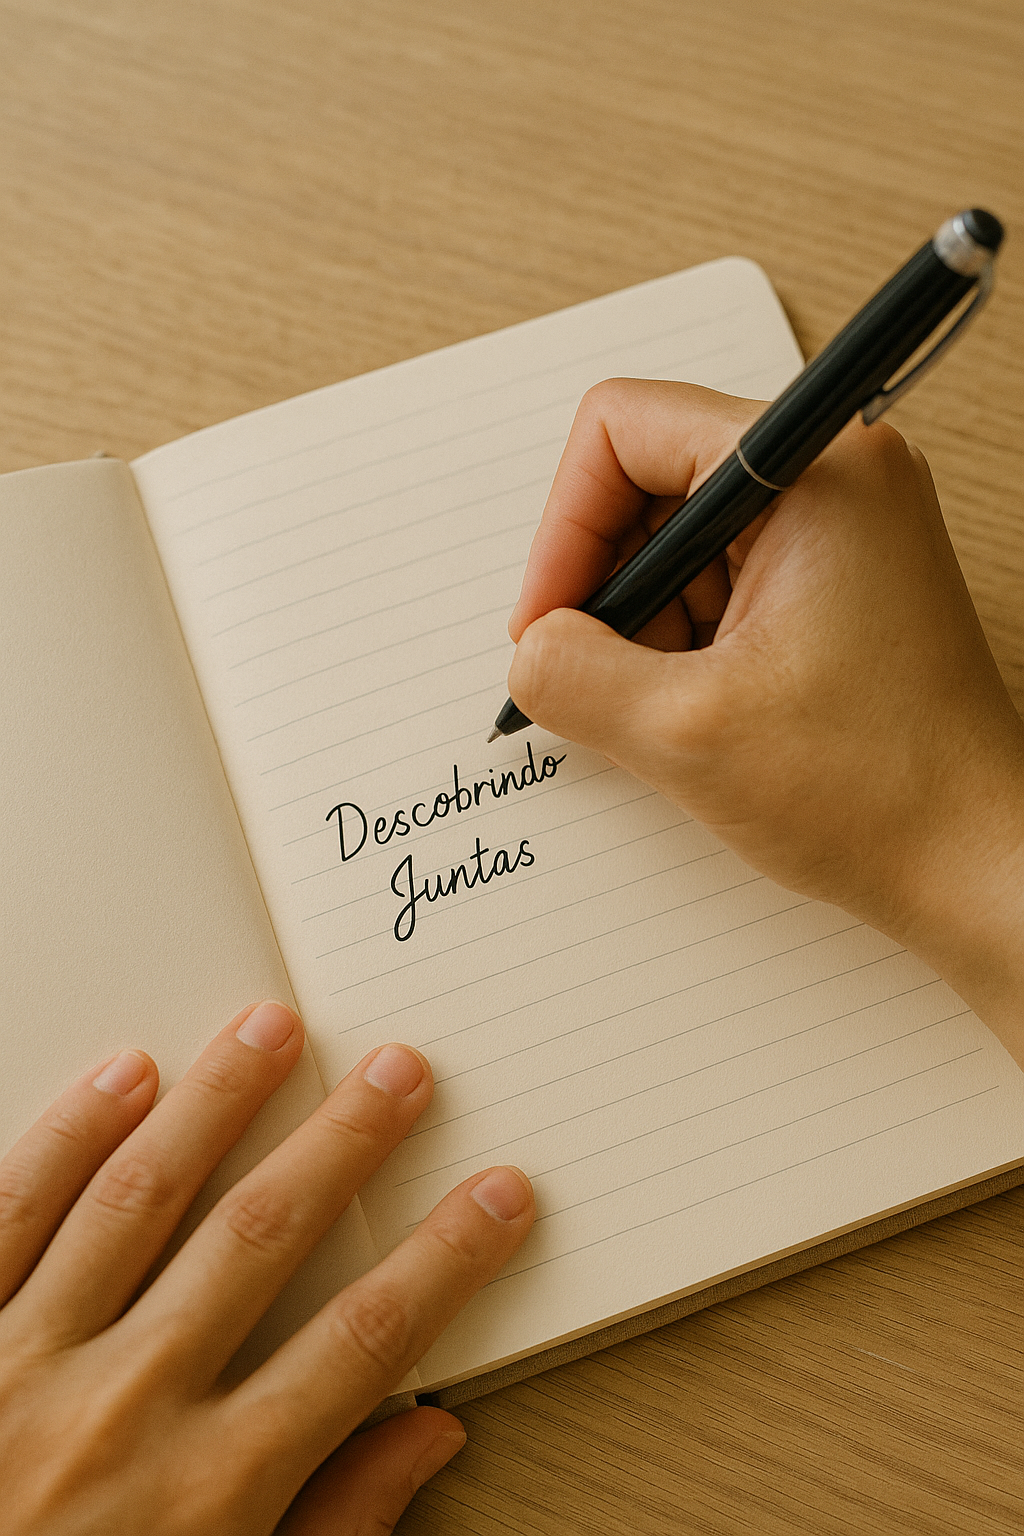 Descobrindo
Juntas